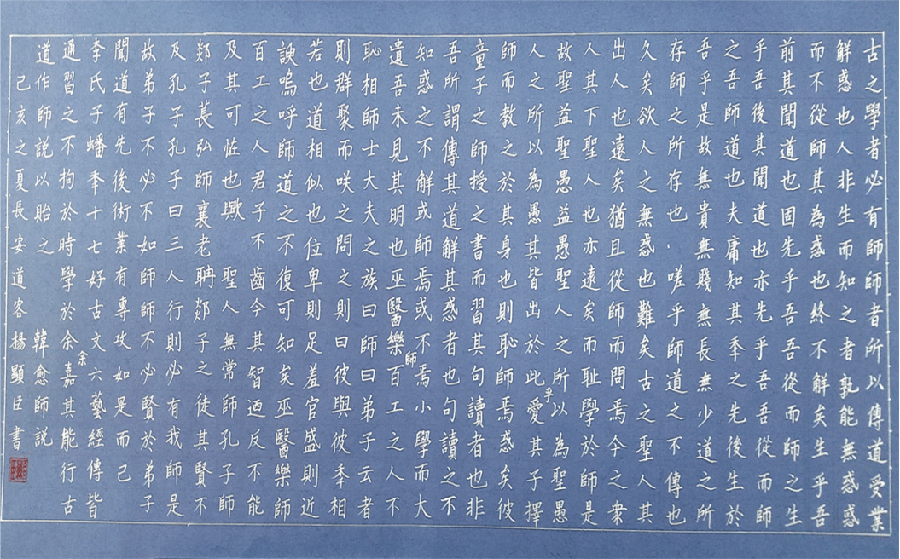 古之學者必有師師者所以傳道受業
解惑也人非生而知之者孰能無惑惑
而不從師其為惑也終不解矣生乎吾
前其聞道也固先乎吾吾從而師之生
乎吾後其聞道也亦先乎吾吾從而師
之吾師道也夫庸知其秊之先後生於
吾乎是故無貴無賤無長無少道之所
存師之所存也嗟乎師道之不傳也
久矣欲人之無惑也難矣古之聖人其
出人也遠矣猶且從師而問焉今之衆
人其下聖人也亦遠矣而恥學於師是
故聖益聖愚益愚聖人之所以為聖愚
人之所以為愚其皆出於此乎愛其子擇
師而教之於其身也則恥師焉惑矣彼
童子之師授之書而習其句讀者也非
吾所謂傳其道解其惑者也句讀之不
知惑之不解或師焉或不焉小學而大
遺吾未見其明也巫醫樂師百工之人不
恥相師士大夫之族曰師曰弟子云者
則群聚而咲之問之則曰彼與彼秊相
若也道相似也位卑則足羞官盛則近
諛嗚呼師道之不復可知矣巫醫樂師
百工之人君子不齒今其智迺反不能
及其可恠也歟聖人無常師孔子師
郯子萇弘師襄老聃郯子之徒其賢不
及孔子孔子曰三人行則必有我師是
故弟子不必不如師師不必賢於弟子
聞道有先後術業有專攻如是而已
李氏子蟠秊十七好古文六藝經傳皆
通習之不拘於時學於余余嘉其能行古
道作師說以貽之 韓愈師說
己亥之夏長安道客楊顯臣書